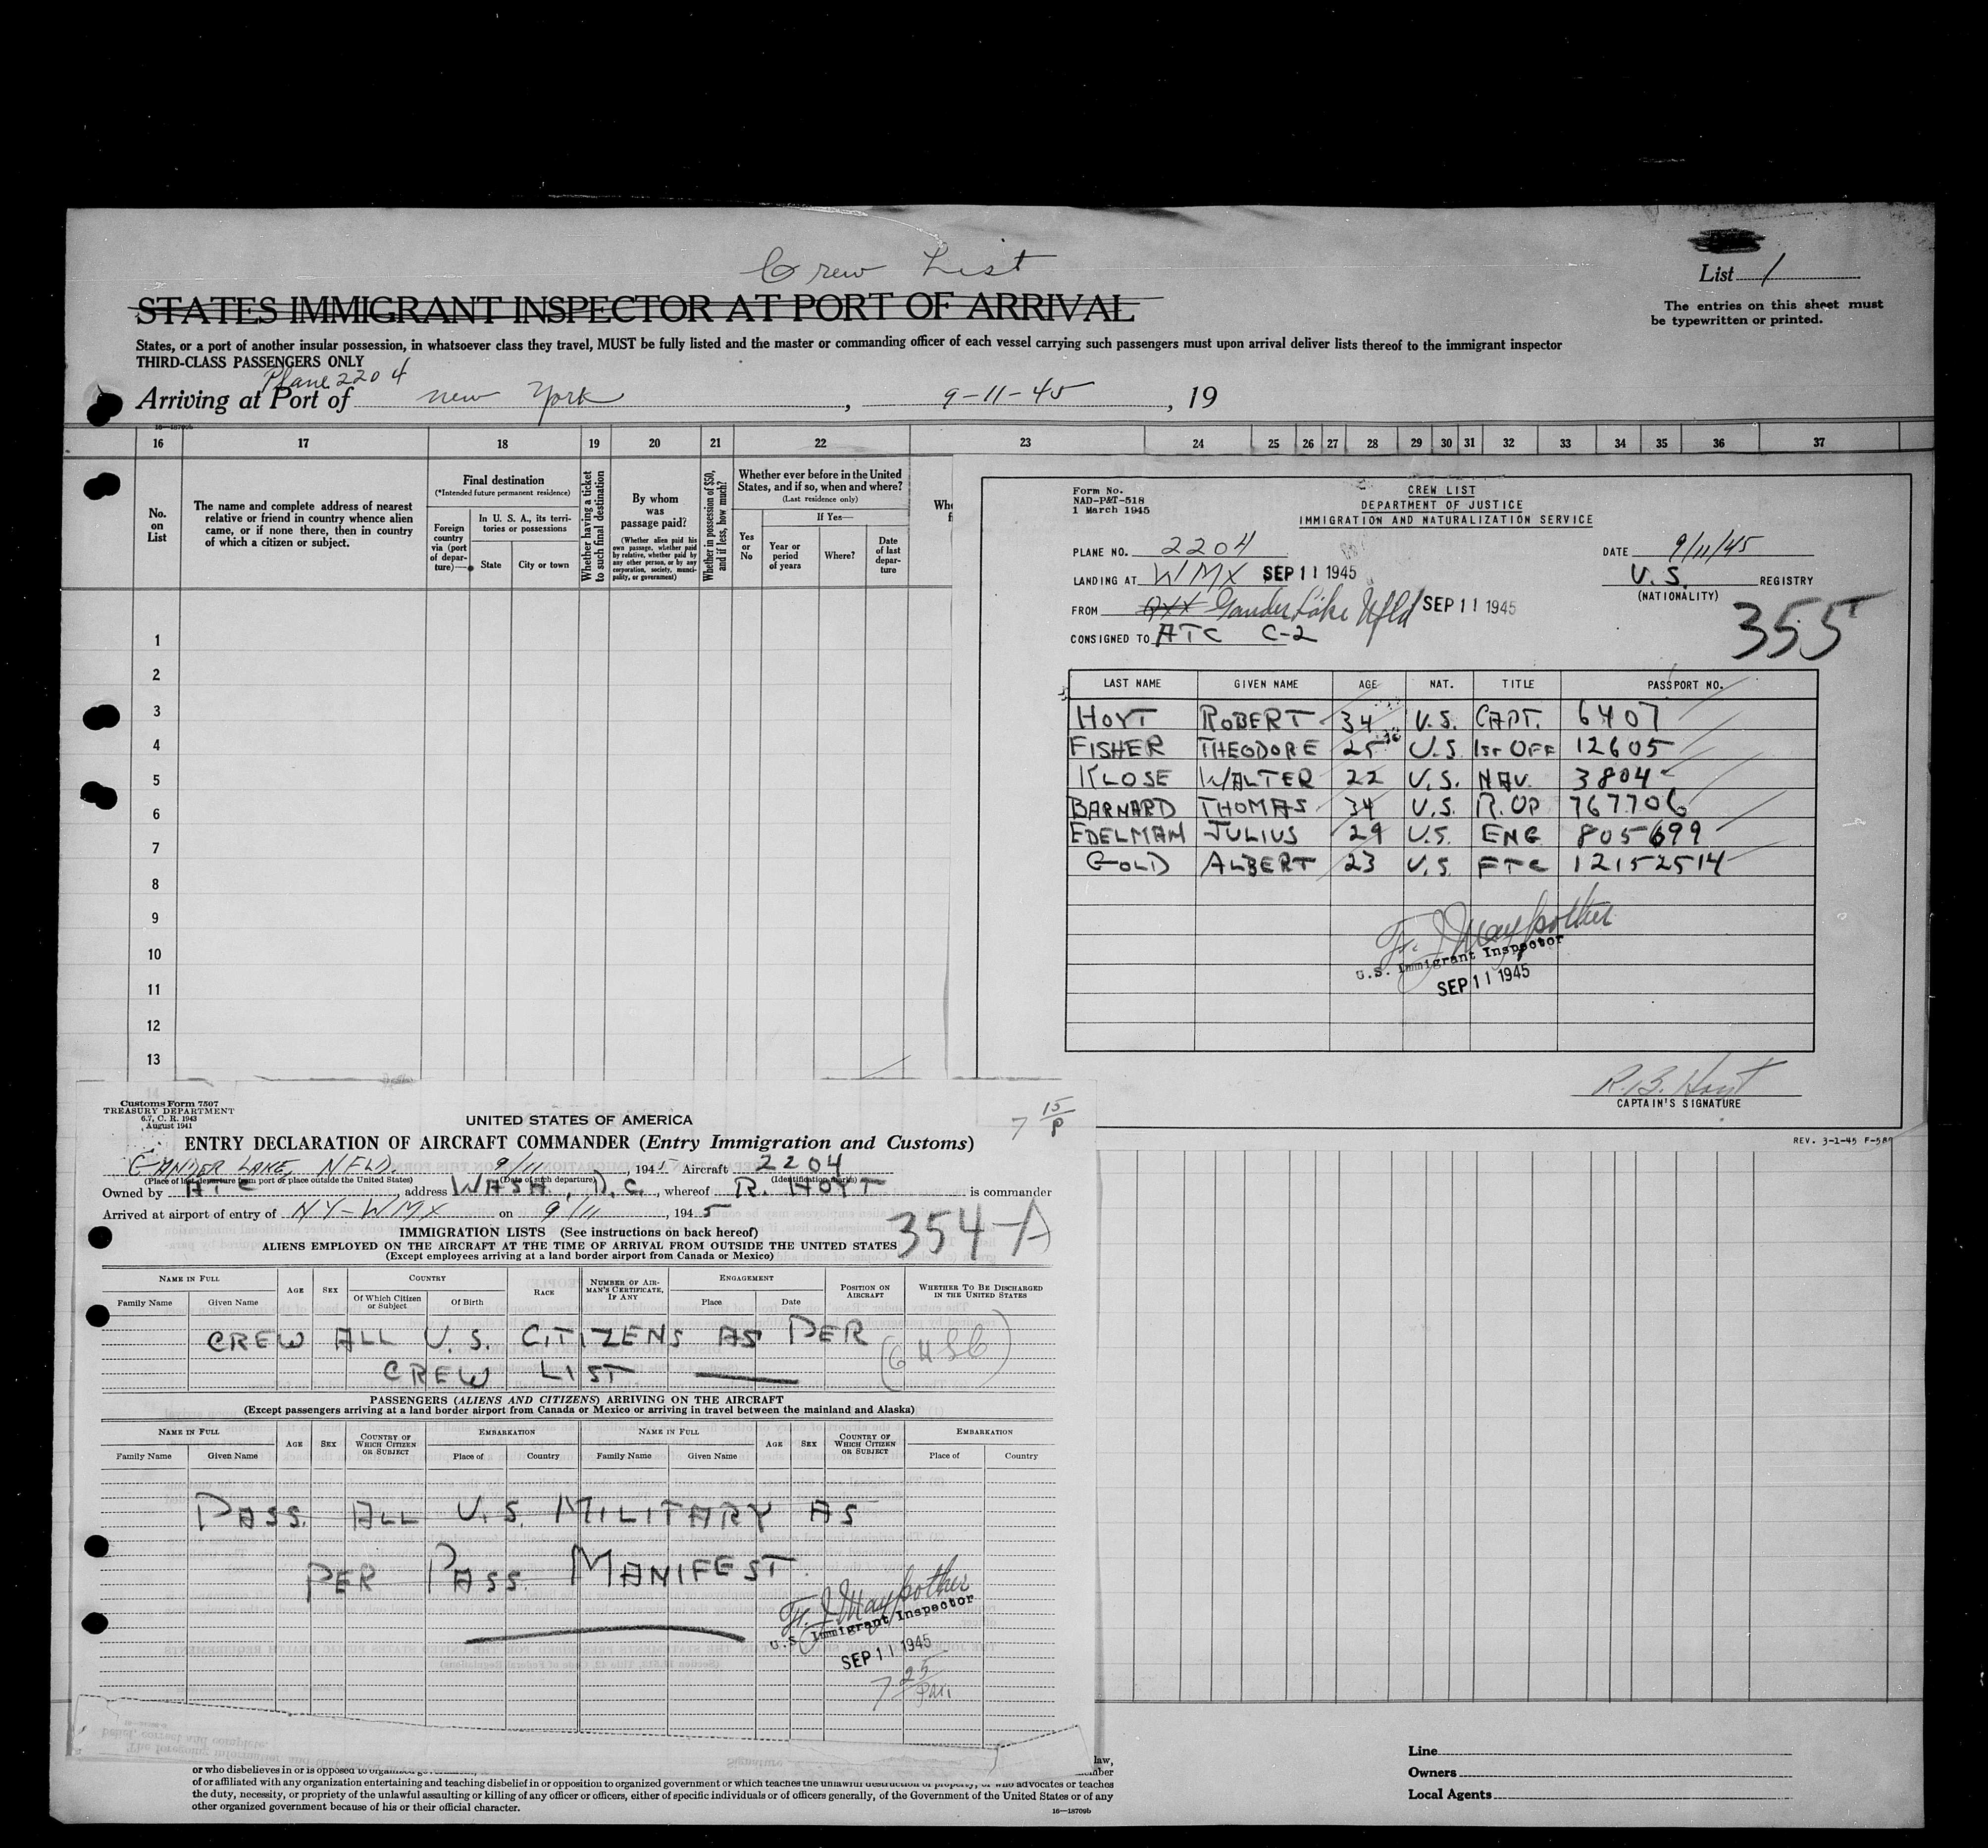 Crew List
List 1
STATES IMMIGRANT INSPECTOR AT PORT OF ARRIVAL
The entries on this sheet must
be typewritten or printed.
States, or a port of another insular possession, in whatsoever class they travel, MUST be fully listed and the master or commanding officer of each vessel carrying such passengers must upon arrival deliver lists thereof to the immigrant inspector
THIRD-CLASS PASSENGERS ONLY
Plane 2204
Arriving at Port of New York, 9-11-45, 19
16 17 18 19 20 21 22 23 24 25 26 27 28 29 30 31 32 33 34 35 36 37
No. on List
The name and complete address of nearest
relative or friend in country whence alien
came, or if none there, then in country
of which a citizen or subject.
Final destination
(*Intended future permanent residence)
Foreign country via (port of departure)—
In U. S. A., its territories or possessions
State
City or town
Whether having a ticket to such final destination
By whom was passage paid?
(Whether alien paid his own passage, whether paid by relative, whether paid by any other person, or by any corporation, society, municipality, or government)
Whether in possession of $50, and if less, how much?
Whether ever before in the United States, and if so, when and where?
(Last residence only)
Yes or No
If Yes—
Year or period of years
Where?
Date of last departure
1
2
3
4
5
6
7
8
9
10
11
12
13
Form No.
NAD-P&T-518
1 March 1945
CREW LIST
DEPARTMENT OF JUSTICE
IMMIGRATION AND NATURALIZATION SERVICE
PLANE NO. 2204
DATE 9/11/45
LANDING AT WMX SEP 11 1945
U.S. REGISTRY
(NATIONALITY)
FROM Gander Lake Nfld SEP 11 1945
355
CONSIGNED TO ATC C-2
LAST NAME GIVEN NAME AGE NAT. TITLE PASSPORT NO.
HOYT ROBERT 34 U.S. CAPT. 6407
FISHER THEODORE 25 U.S. 1ST OFF 12605
KLOSE WALTER 22 U.S. NAV. 3804
BARNARD THOMAS 34 U.S. R.OP 767706
EDELMAN JULIUS 29 U.S. ENG 805699
GOLD ALBERT 23 U.S. FTC 12152514
U.S. Immigrant Inspector
SEP 11 1945
R.B. Hoyt
CAPTAIN'S SIGNATURE
REV. 3-1-45 F-589
Customs Form 7507
TREASURY DEPARTMENT
6.7, C. R. 1943
August 1941
UNITED STATES OF AMERICA
7 15/P
ENTRY DECLARATION OF AIRCRAFT COMMANDER (Entry Immigration and Customs)
GANDER LAKE, NFLD. 9/11, 1945 Aircraft 2204
(Place of last departure from port or place outside the United States) (Date of such departure) (Identification marks)
Owned by ATC, address WASH., D.C., whereof R. HOYT is commander
Arrived at airport of entry of NY-WMX on 9/11, 1945
354-A
IMMIGRATION LISTS (See instructions on back hereof)
ALIENS EMPLOYED ON THE AIRCRAFT AT THE TIME OF ARRIVAL FROM OUTSIDE THE UNITED STATES
(Except employees arriving at a land border airport from Canada or Mexico)
NAME IN FULL
Family Name Given Name
AGE SEX
COUNTRY
Of Which Citizen or Subject Of Birth
RACE
NUMBER OF AIRMAN'S CERTIFICATE, IF ANY
ENGAGEMENT
Place Date
POSITION ON AIRCRAFT
WHETHER TO BE DISCHARGED IN THE UNITED STATES
CREW ALL U.S. CITIZENS AS PER
CREW LIST
PASSENGERS (ALIENS AND CITIZENS) ARRIVING ON THE AIRCRAFT
(Except passengers arriving at a land border airport from Canada or Mexico or arriving in travel between the mainland and Alaska)
NAME IN FULL AGE SEX COUNTRY OF WHICH CITIZEN OR SUBJECT EMBARKATION NAME IN FULL AGE SEX COUNTRY OF WHICH CITIZEN OR SUBJECT EMBARKATION
Family Name Given Name Place of Country Family Name Given Name Place of Country
PASS. ALL U.S. MILITARY AS
PER PASS. MANIFEST.
U.S. Immigrant Inspector
SEP 11 1945
7 25
Line
Owners
Local Agents
or who disbelieves in or is opposed to
of or affiliated with any organization entertaining and teaching disbelief in or opposition to organized government or which teaches the unlawful destruction of property, or who advocates or teaches
the duty, necessity, or propriety of the unlawful assaulting or killing of any officer or officers, either of specific individuals or of officers generally, of the Government of the United States or of any
other organized government because of his or their official character.
16—18709b